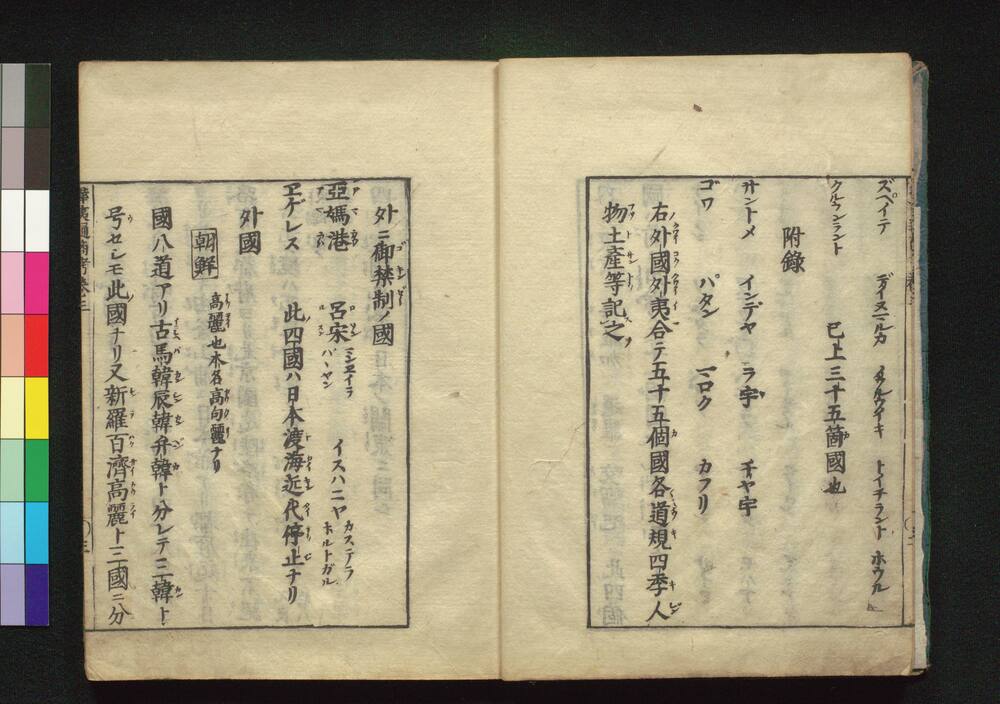 スペイテ デイヌマルカ タルケイキ トイチラント ホウル
クルウンラント
已上三十五箇國也
附錄
サントメ インデヤ ララ宇 チヤ宇
ゴワ パタン マロク カフリ
右外國外夷合テ五十五個國各道規四季人
物土產等記之
外ニ御禁制ノ國
亞媽港 呂宋 マンエイラ バヽヤン イスハニヤ カステラ ホルトガル
ヱゲレス 此四國ハ日本渡海近代停止ナリ
外國
朝鮮 高麗也本名高句麗ナリ
國八道アリ古馬韓辰韓弁韓ト分レテ三韓ト
号セシモ此國ナリ又新羅百濟高麗ト三國ニ分
華夷通商考卷三
三